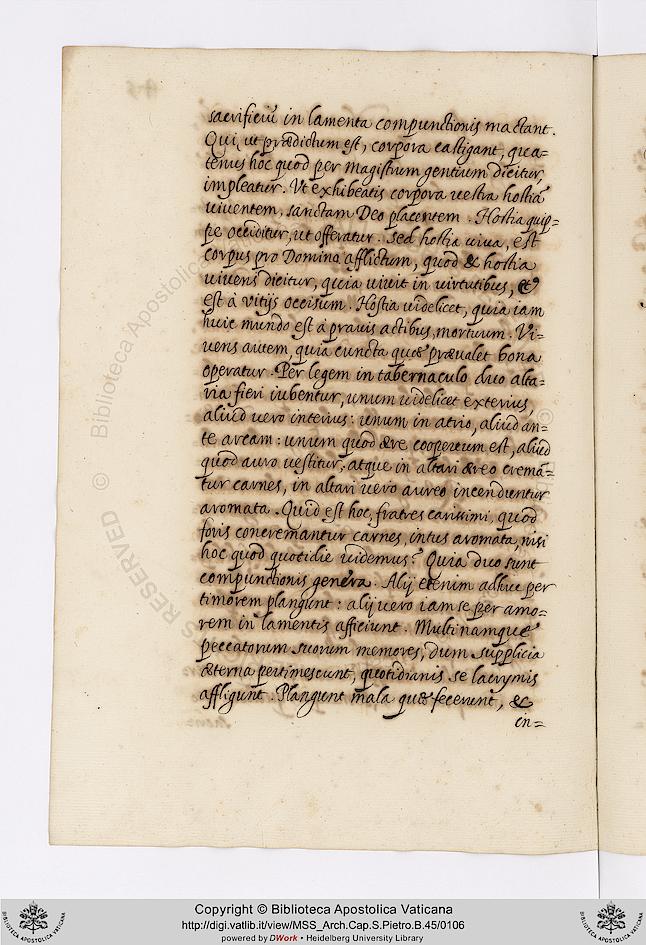 sacrificiũ in lamenta compunctionis mactant.
Qui, ut prædictum est, corpora castigant, qua=
tenus hoc quod per Magistrum gentium dicitur,
impleatur. Vt exhibeatis corpora uestra hostiã
uiuentem, sanctam Deo placentem. Hostia quip=
pe occiditur, ut offeratur. sed hostia uiua, est
corpus pro Domino afflictum, quod & hostia
uiuens dicitur, quia uiuit in uirtutibus, et
est à vitijs occisum. Hostia uidelicet, quia iam
huic mundo est à prauis actibus, mortuum. Vi=
uens autem, quia cuncta quæ præualet bona
operatur. Per legem in tabernaculo duo alta=
ria fieri iubentur, unum uidelicet exterius,
aliud uero interius: unum in atrio, aliud an=
te arcam: unum quod ære coopertum est, aliud
quod auro uestitur, atque in altari æreo cremã=
tur carnes, in altari uero aureo incenduntur
aromata. Quid est hoc, fratres carissimi, quod
foris concremantur carnes, intus aromata, nisi
hoc quod quotidie uidemus? Quia duo sunt
compunctionis genera. Alij etenim adhuc per
timorem plangunt: alij uero iam se per amo=
rem in lamentis afficiunt. Multi namque
peccatorum suorum memores, dum supplicia
æterna pertimescunt, quotidianis se lacrymis
affligunt. Plangunt mala quæ fecerunt, &
in=
Biblioteca Apostolica
© RESERVED
Copyright © Biblioteca Apostolica Vaticana
http://digi.vatlib.it/view/MSS_Arch.Cap.S.Pietro.B.45/0106
powered by DWork • Heidelberg University Library